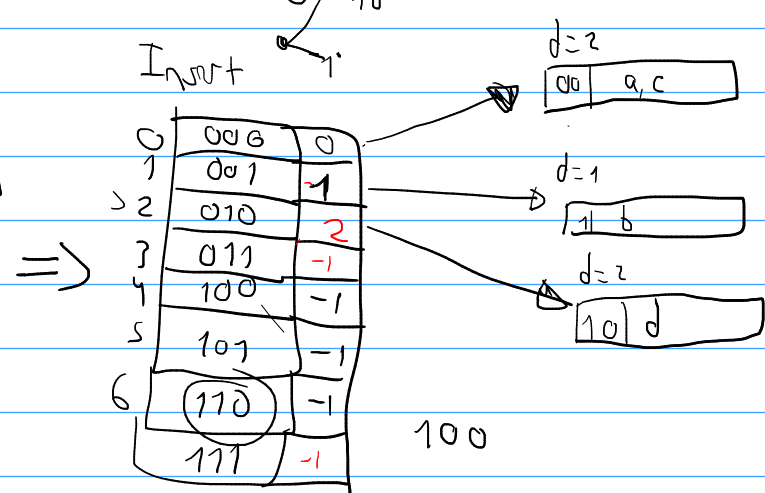 Insert
0 000 0
1 001 -1
2 010 2
3 011 -1
4 100 -1
5 101 -1
6 110 -1
111 -1
d=2
00 a,c
d=1
1 b
d=2
10 d
100